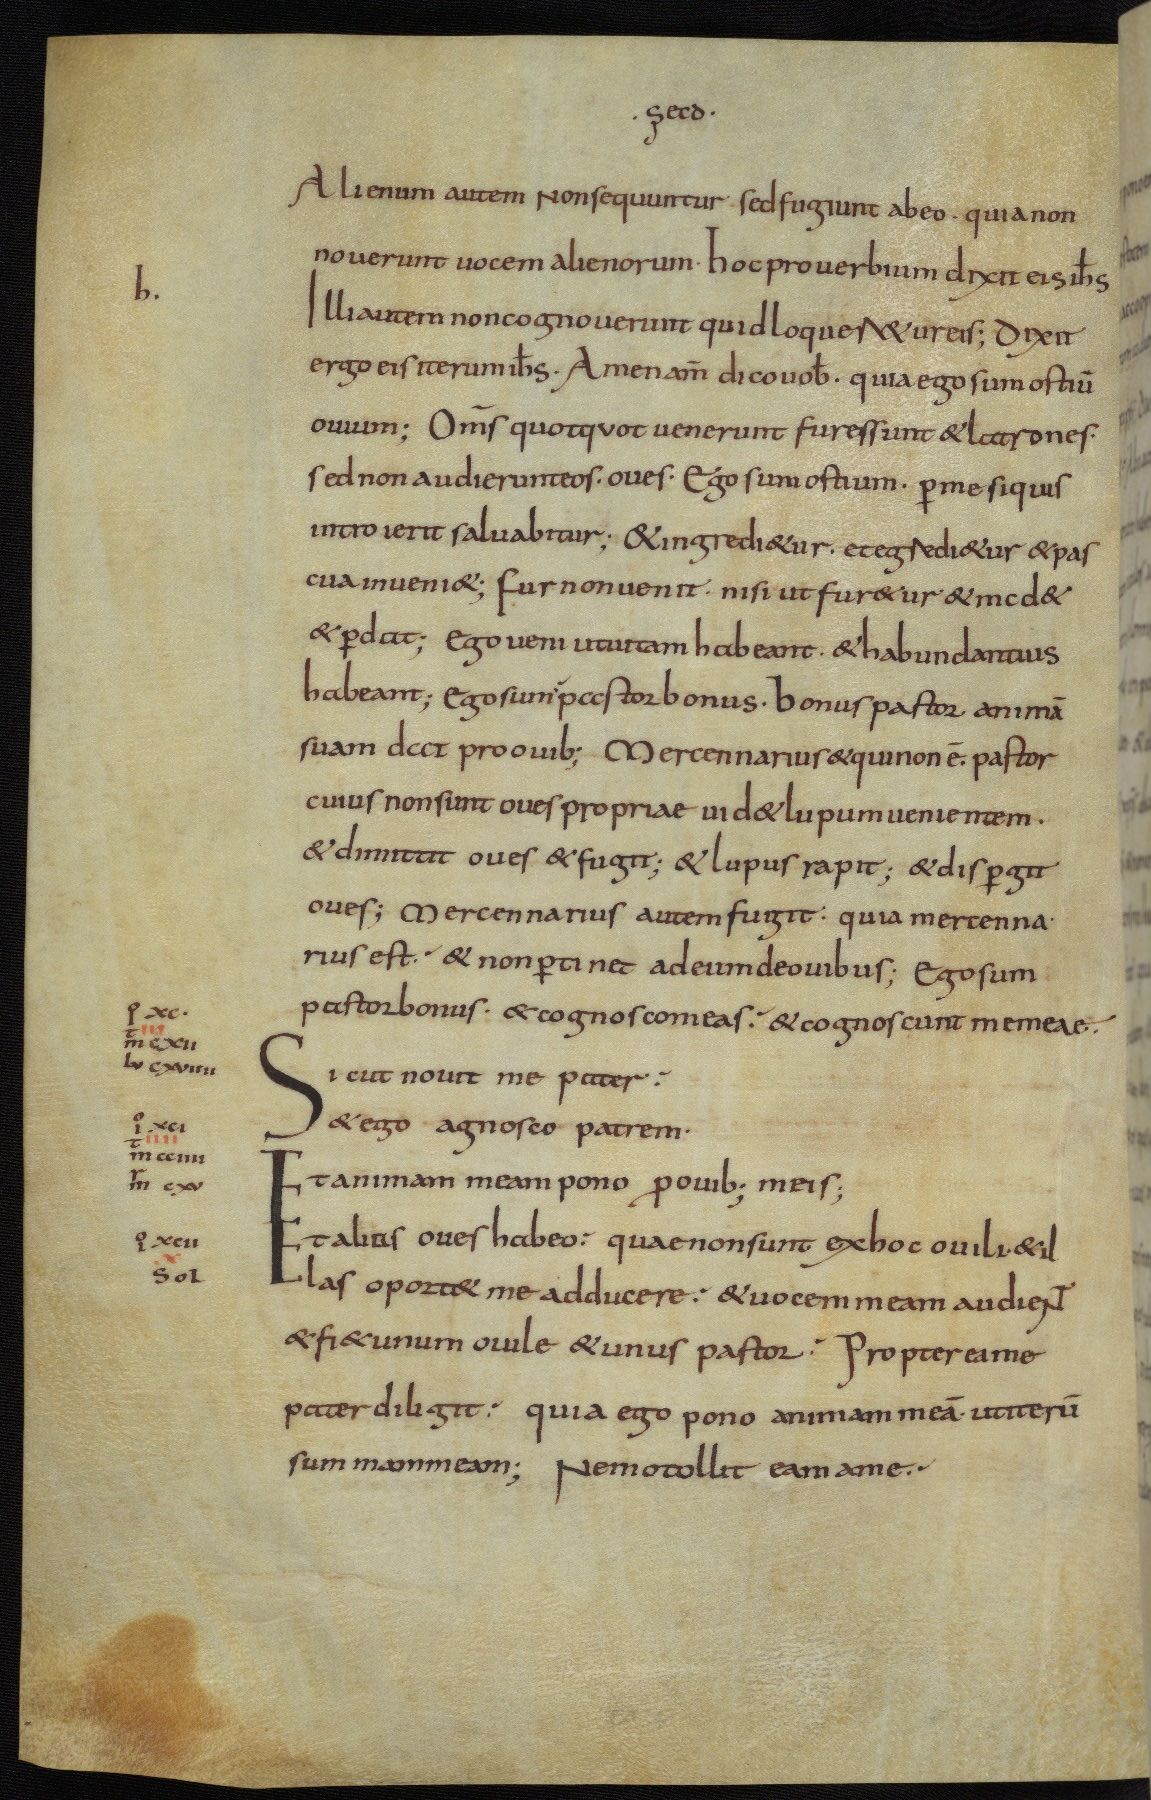 . secd .
Alienum autem nonsequuntur sedfugiunt abeo · quianon
nouerunt uocem alienorum · hocprouerbium dixit eis ih̄s
h.
Illiautem noncognouerunt quidloqueN&ureis; Dixit
ergo eis iterum ih̄s · Amenam̄ dicouob̄ · quia ego sum ostiū
ouium; Om̄s quotquot uenerunt furessunt & latrones ·
sednon audierunteos · oues · Ego sum ostium · ꝑme siquis
introierit saluabitur; &ingredi&ur · et egredi&ur &pas
cua inueni&; fur nonuenit · nisi ut fur&ur &mcd&
&ꝑdat; Ego ueni utuitam habeant · &habundantius
habeant; Egosum pastor bonus · bonus pastor animā
suam dat pro ouib; Mercennarius &quinon ē · pastor
cuius nonsunt oues propriae uid& lupum uenientem ·
&dimittit oues &fugit; &lupus rapit; &disꝑgit
oues; Mercennarius autem fugit · quia mercenna ·
rius est · & nonꝑtinet adeumdeouibus; Egosum
pastorbonus · &cognoscomeas · &cognoscunt memeae ·
i xc ·
IIII
m cxii
lu cxviiii
Sicut nouit me pater ·
&ego agnosco patrem ·
i xci
IIII
m cciiii
m cxv
Etanimam meam pono ꝓouib; meis;
i xcii
x
Sol
Etalias oues habeo · quaenonsunt exhoc ouili · &il
las oport& me adducere · &uocemmeam audieNT
&fi&unum ouile &unus pastor · Proptereame
pater diligit · quia ego pono animam meā · utiterū
summammeam; Nemotollit eam ame ·